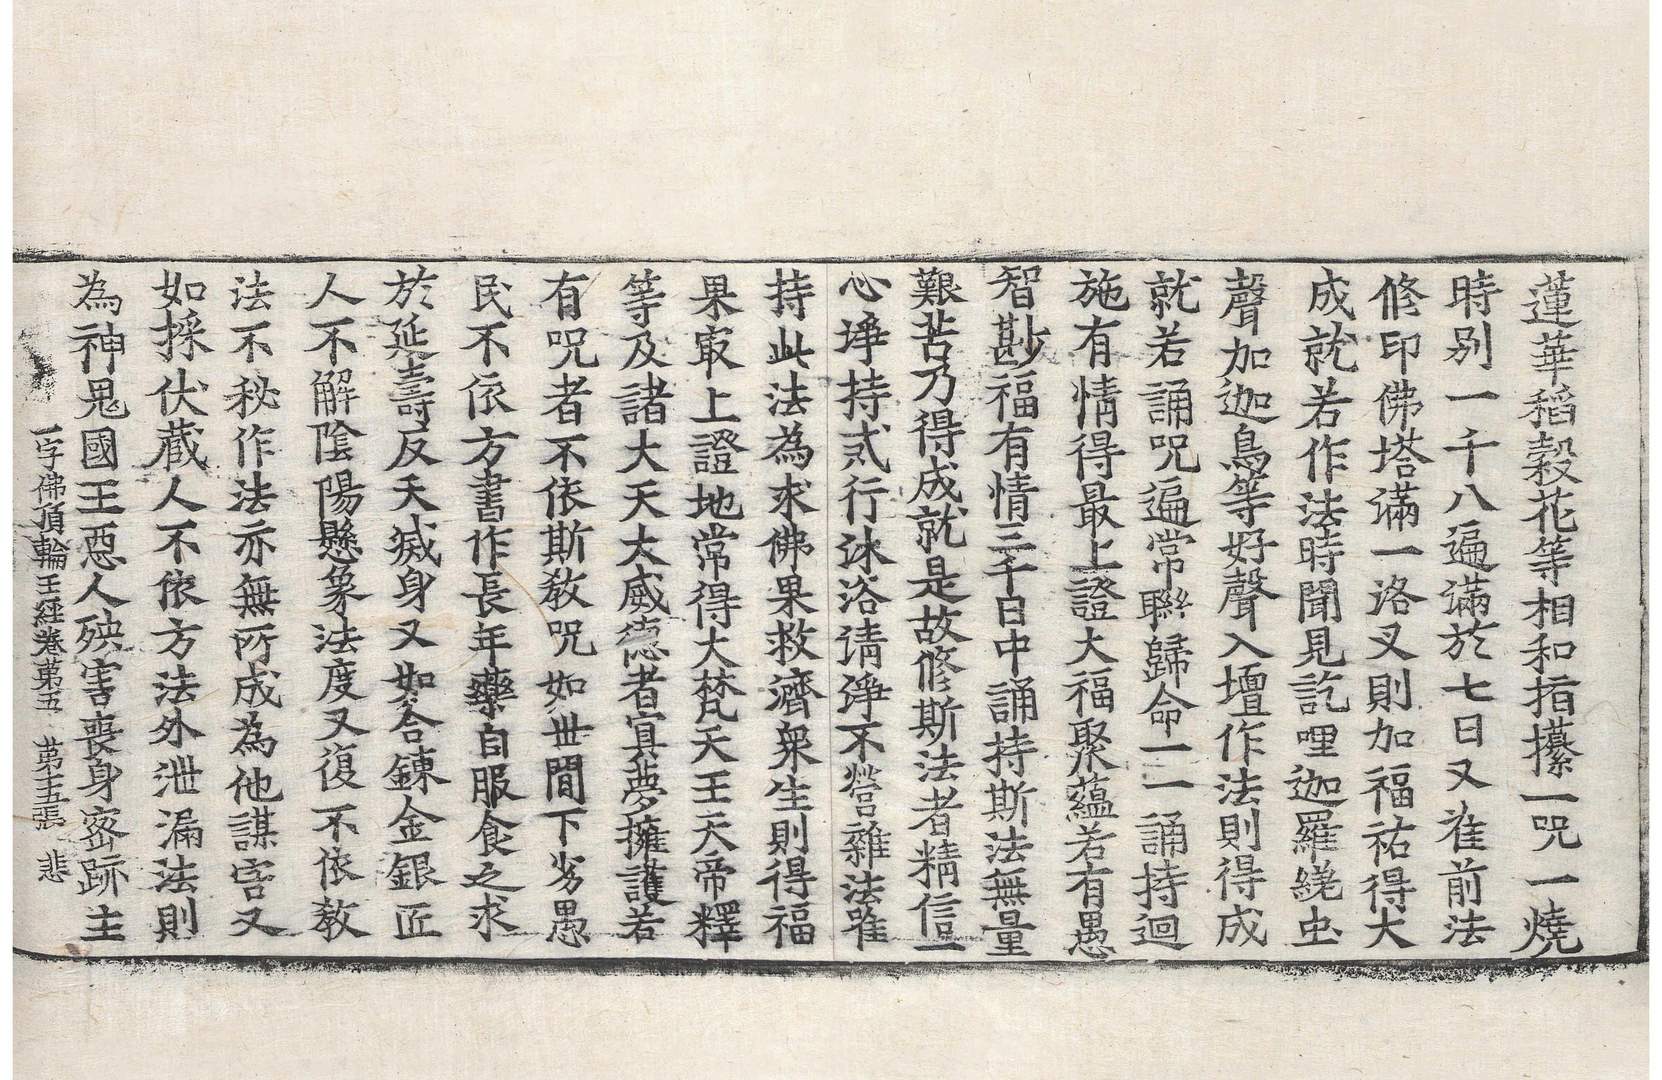 蓮華稻穀花等相和指攥一呪一燒
時别一千八遍滿於七日又准前法
修印佛塔滿一洛叉則加福祐得大
成就若作法時聞見訖哩迦羅繞虫
聲加迦鳥等好聲入壇作法則得成
就若誦呪遍常聯歸命一一誦持迴
施有情得最上證大福聚蘊若有愚
智尠福有情三千日中誦持斯法無量
艱苦乃得成就是故修斯法者精信一
心埩持貳行沐浴清淨不營雜法唯
持此法為求佛果救濟衆生則得福
果㝡上證地常得大梵天王天帝釋
等及諸大天大威德者寘夢擁護若
有呪者不依斯教呪如世間下劣愚
民不依方書作長年藥自服食之求
於延壽反夭滅身又如合鍊金銀匠
人不解陰陽懸象法度又復不依教
法不秘作法亦無所成為他謀害又
如採伏藏人不依方法外泄漏法則
為神鬼國王惡人殃害喪身密跡主
一字佛頂輪王經卷第五 第十五張 悲